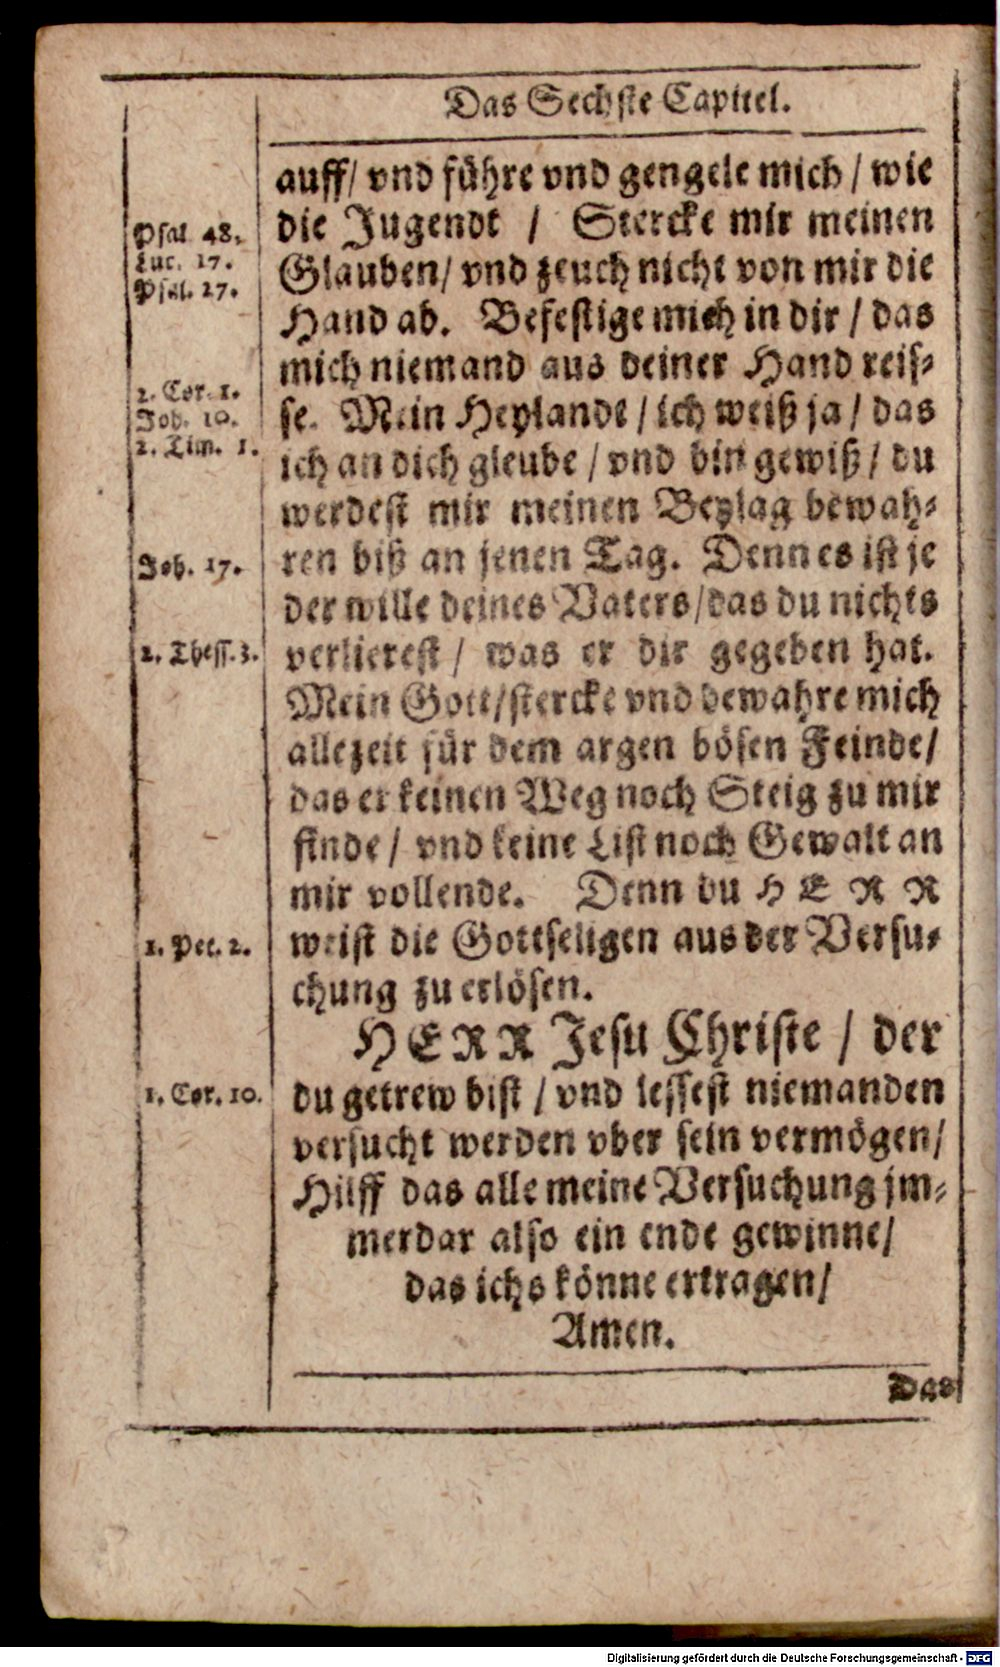 Das Sechste Capittel.
auff/ vnd führe vnd gengele mich / wie
die Jugendt / Stercke mir meinen
Psal. 48.
Luc. 17.
Psal. 27.
Glauben/ vnd zeuch nicht von mir die
Hand ab. Befestige mich in dir / das
mich niemand aus deiner Hand reis-
2. Cor. 1.
Joh. 10.
2. Tim. 1.
se. Mein Heylandt / ich weiß ja / das
ich an dich gleube / vnd bin gewiß / du
werdest mir meinen Beylag bewah-
Joh. 17.
ren biß an jenen Tag. Denn es ist je
der wille deines Vaters/das du nichts
2. Thess. 3.
verlierest / was er dir gegeben hat.
Mein Gott/stercke vnd bewahre mich
allezeit für dem argen bösen Feinde/
das er keinen Weg noch Steig zu mir
finde / vnd keine List noch Gewalt an
mir vollende. Denn du HERR
1. Pet. 2.
weist die Gottseligen aus der Versu-
chung zu erlösen.
HERR Jesu Christe / der
1. Cor. 10.
du getrew bist / vnd lessest niemanden
versucht werden vber sein vermögen/
Hilff das alle meine Versuchung jm-
merdar also ein ende gewinne/
das ichs könne ertragen/
Amen.
Das
Digitalisierung gefördert durch die Deutsche Forschungsgemeinschaft - DFG